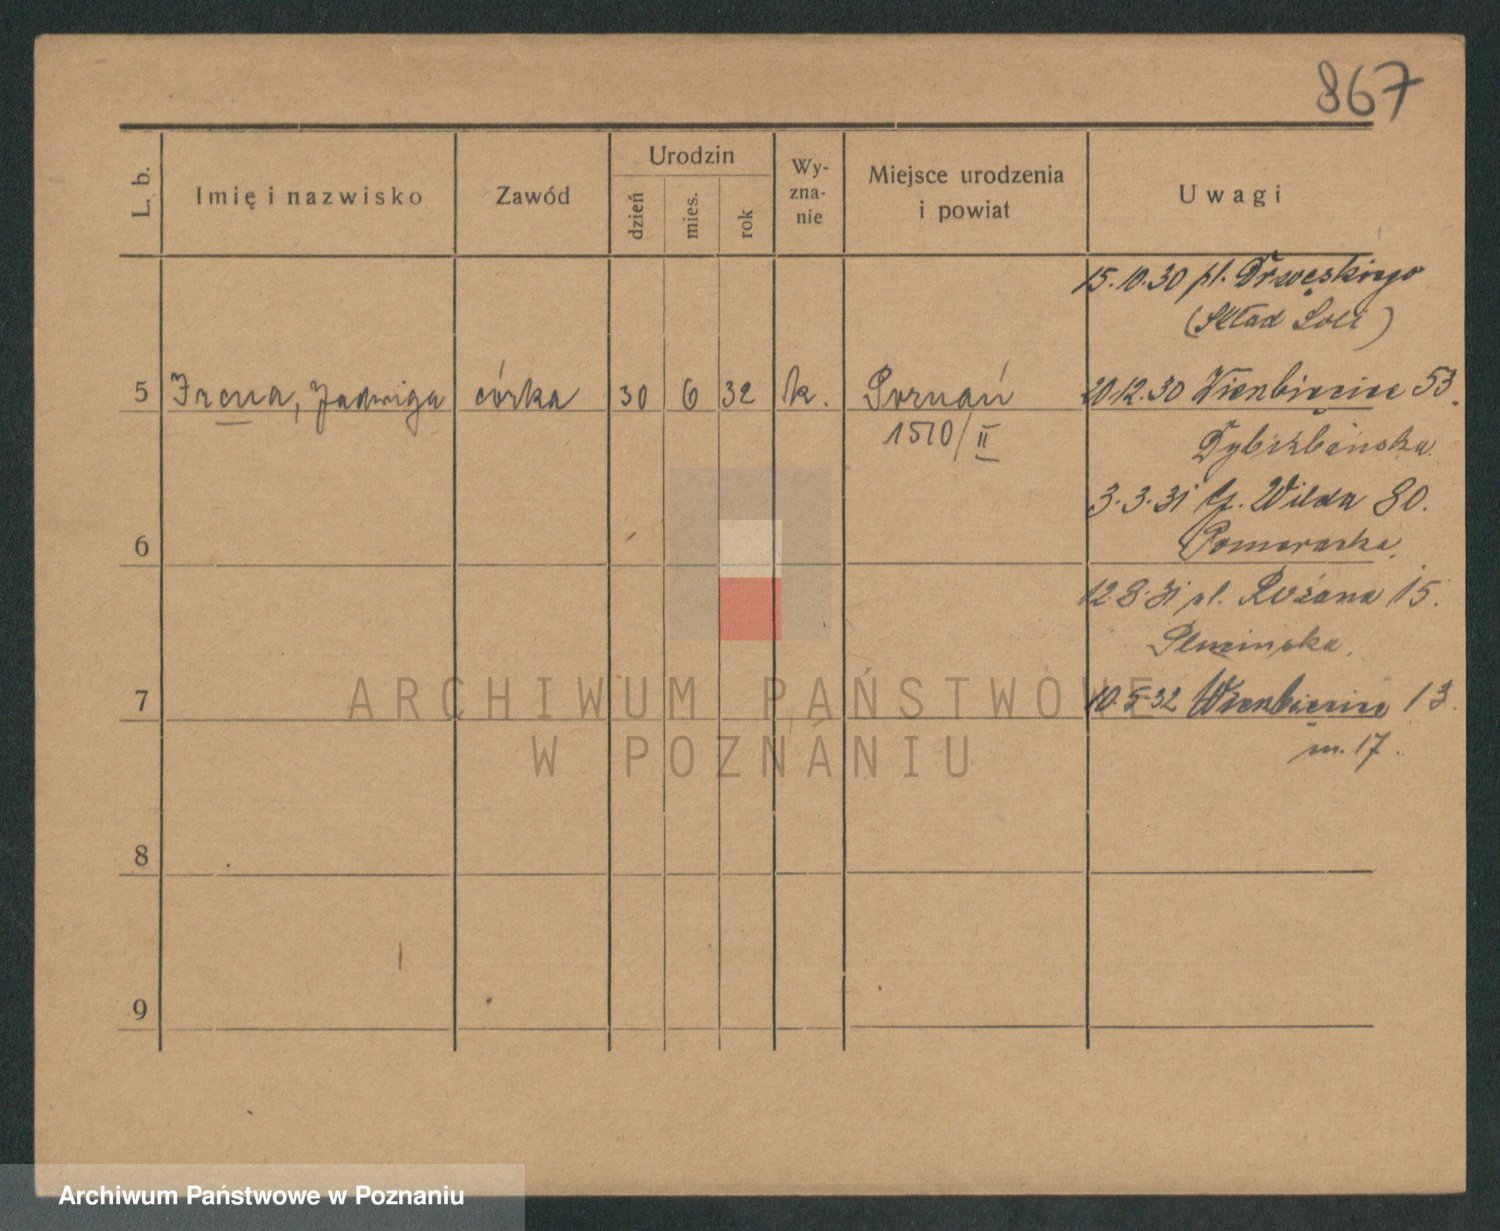 867
L. b.
Imię i nazwisko
Zawód
Urodzin
dzień
mies.
rok
Wy-
zna-
nie
Miejsce urodzenia
i powiat
Uwagi
15.10.30 pl. Drwęskiego
(Skład Soli)
5 Irena, Jadwiga córka 30 6 32 k. Poznań
1510/II
20.12.30 Wierzbięcice 53.
3.3.31 G. Wilda 80.
6
12.8.31 pl. Różana 15.
7
10.5.32 Wierzbięcice 13
m. 17.
8
9
ARCHIWUM PAŃSTWOWE
W POZNANIU
Archiwum Państwowe w Poznaniu